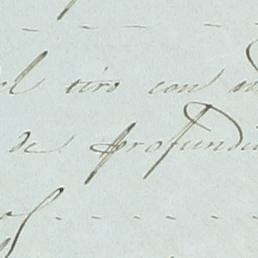 tiro con
de profundid